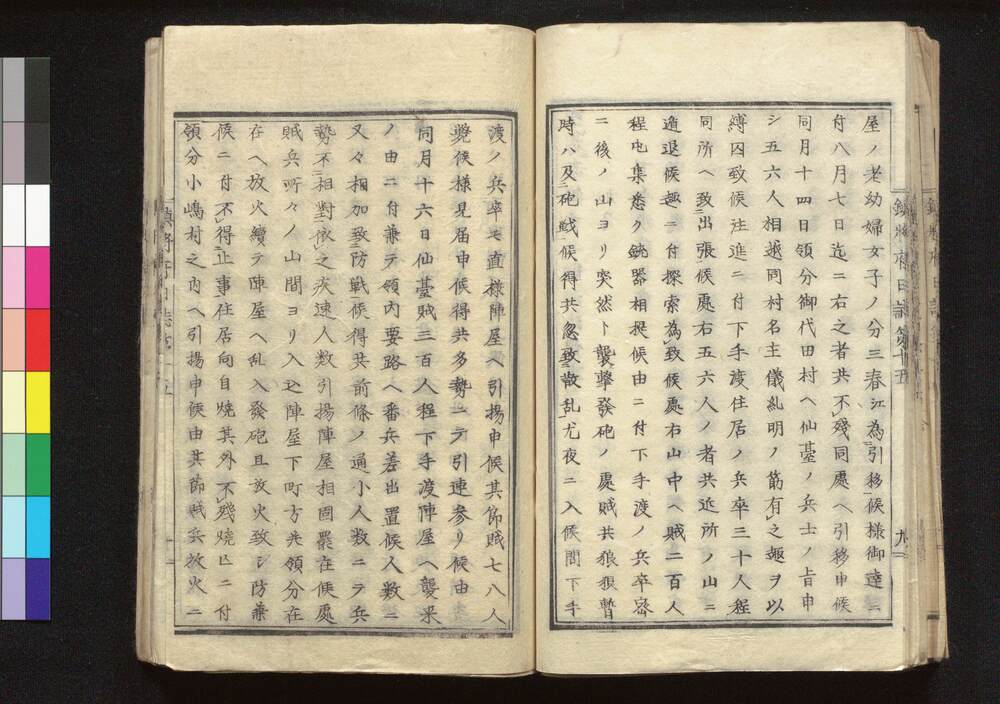 屋ノ老幼婦女子ノ分三春江為引移候様御達ニ
付八月七日迄ニ右之者共不残同處ヘ引移申候
同月十四日領分御代田村ヘ仙臺ノ兵士ノ旨申
シ五六人相越同村名主儀糺明ノ筋有之趣ヲ以
縛囚致候注進ニ付下手渡住居ノ兵卒三十人程
同所ヘ致出張候處右五六人ノ者共近所ノ山ニ
逃退候趣ニ付探索為致候處右山中ヘ賊二百人
程屯集悉ク銃器相提候由ニ付下手渡ノ兵卒密
ニ後ノ山ヨリ突然ト襲撃發砲ノ處賊共狼狽暫
時ハ及砲戦候得共忽致散乱尤夜ニ入候間下手
鎮将府日誌第十五
九
渡ノ兵卒モ直様陣屋ヘ引揚申候其節賊七八人
斃候様見届申候得共多勢ニテ引連参リ候由
同月十六日仙臺賊三百人程下手渡陣屋ヘ襲来
ノ由ニ付兼テ領内要路ヘ番兵差出置候人数ニ
又々相加致防戦候得共前條ノ通小人数ニテ兵
勢不相對依之疾速人数引揚陣屋相固罷在候處
賊兵所々ノ山間ヨリ入込陣屋下町方並領分在
在ヘ放火續テ陣屋ヘ乱入發砲且放火致シ防兼
候ニ付不得止事住居向自焼其外不残焼亡ニ付
領分小嶋村之内ヘ引揚申候由其節賊兵放火ニ